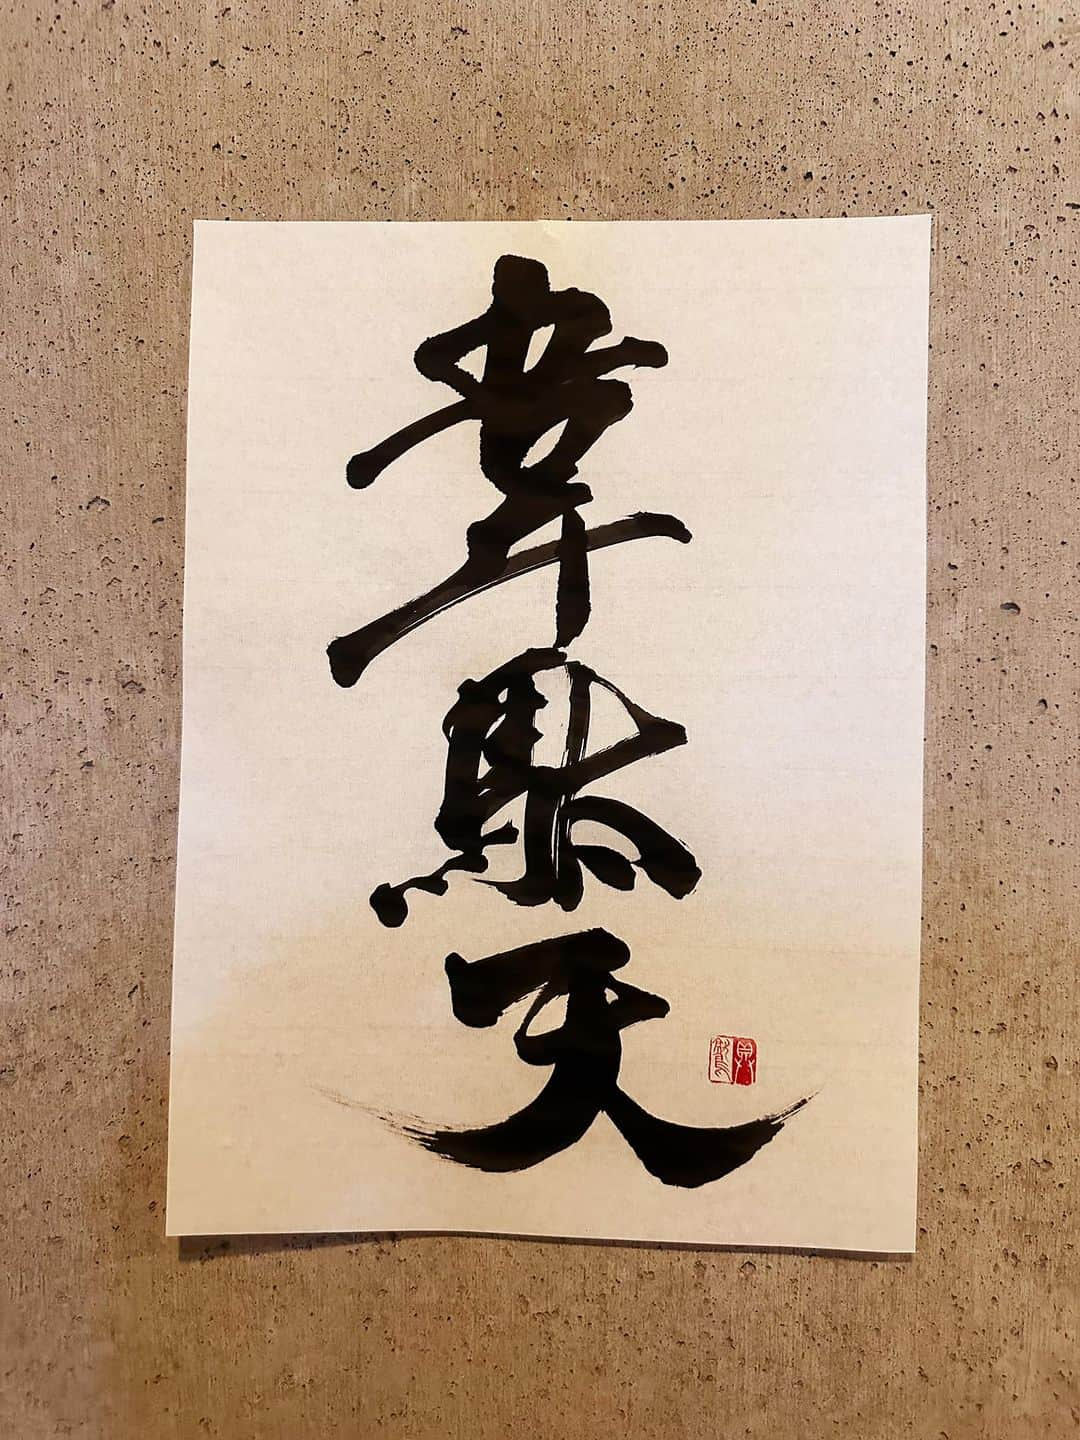 韋駄天